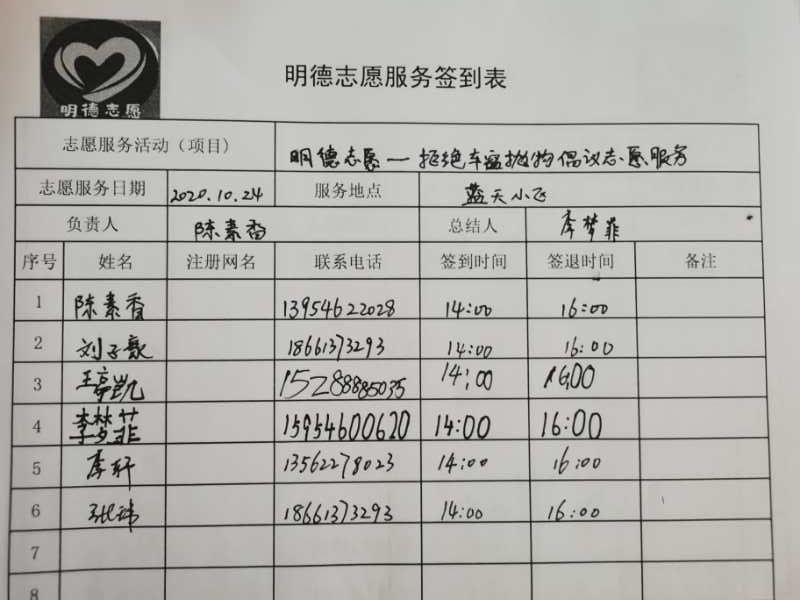 明德志愿
明德志愿服务签到表
志愿服务活动（项目） 明德志愿—拒绝车窗抛物倡议志愿服务
志愿服务日期 2020.10.24 服务地点 蓝天小飞
负责人 陈素香 总结人 李梦菲
序号 姓名 注册网名 联系电话 签到时间 签退时间 备注
1 陈素香 13954622028 14:00 16:00
2 刘子歌 18661373293 14:00 16:00
3 王亭凯 15288885035 14:00 16:00
4 李梦菲 15954600620 14:00 16:00
5 李轩 13562278023 14:00 16:00
6 张玮 18661373293 14:00 16:00
7
8